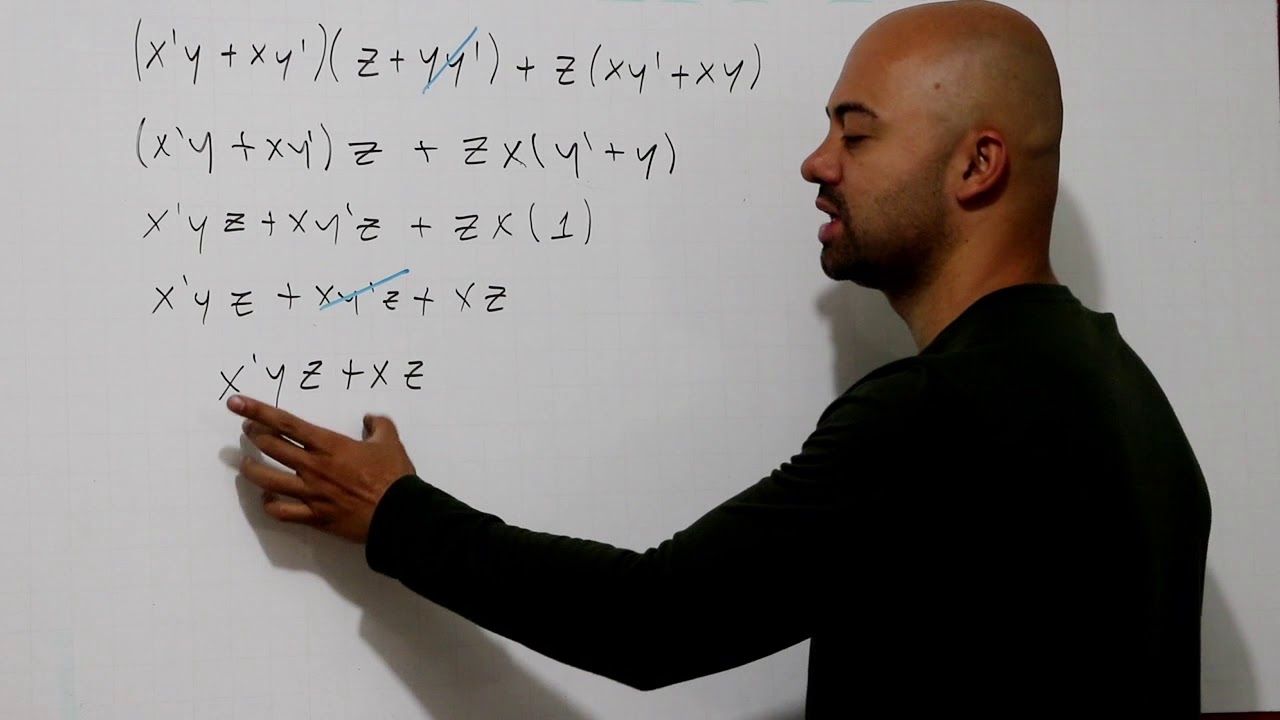 (x'y + xy')(z + yy') + z(xy' + xy)
(x'y + xy')z + zx(y' + y)
x'yz + xy'z + zx(1)
x'yz + xy'z + xz
x'yz + xz